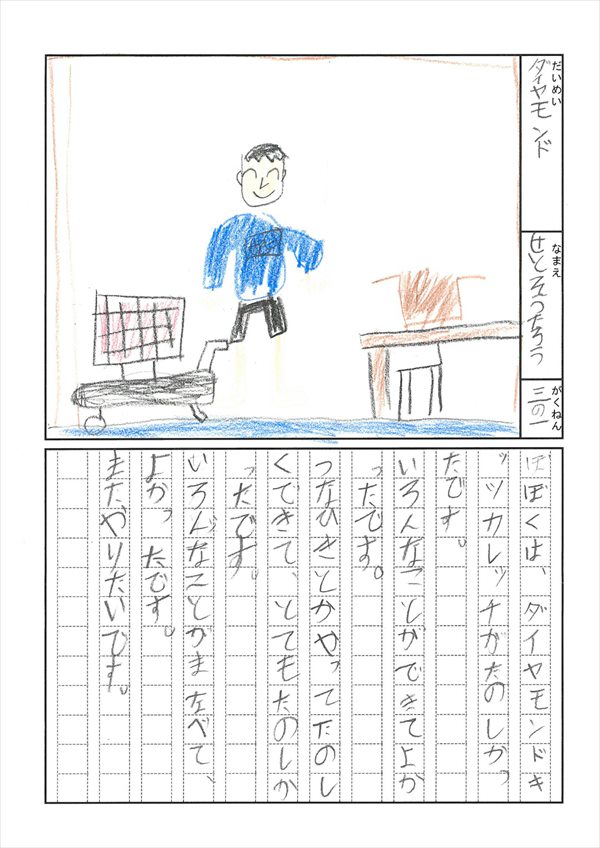 だいめい
ダイヤモンド
なまえ
せとそうたろう
がくねん
三の一
ぼくは、ダイヤモンドキ
ッツカレッチがたのしかっ
たです。
いろんなことができてよか
ったです。
つなひきとかやってたのし
くできて、とてもたのしか
ったです。
いろんなことがまなべて、
よかったです。
またやりたいです。